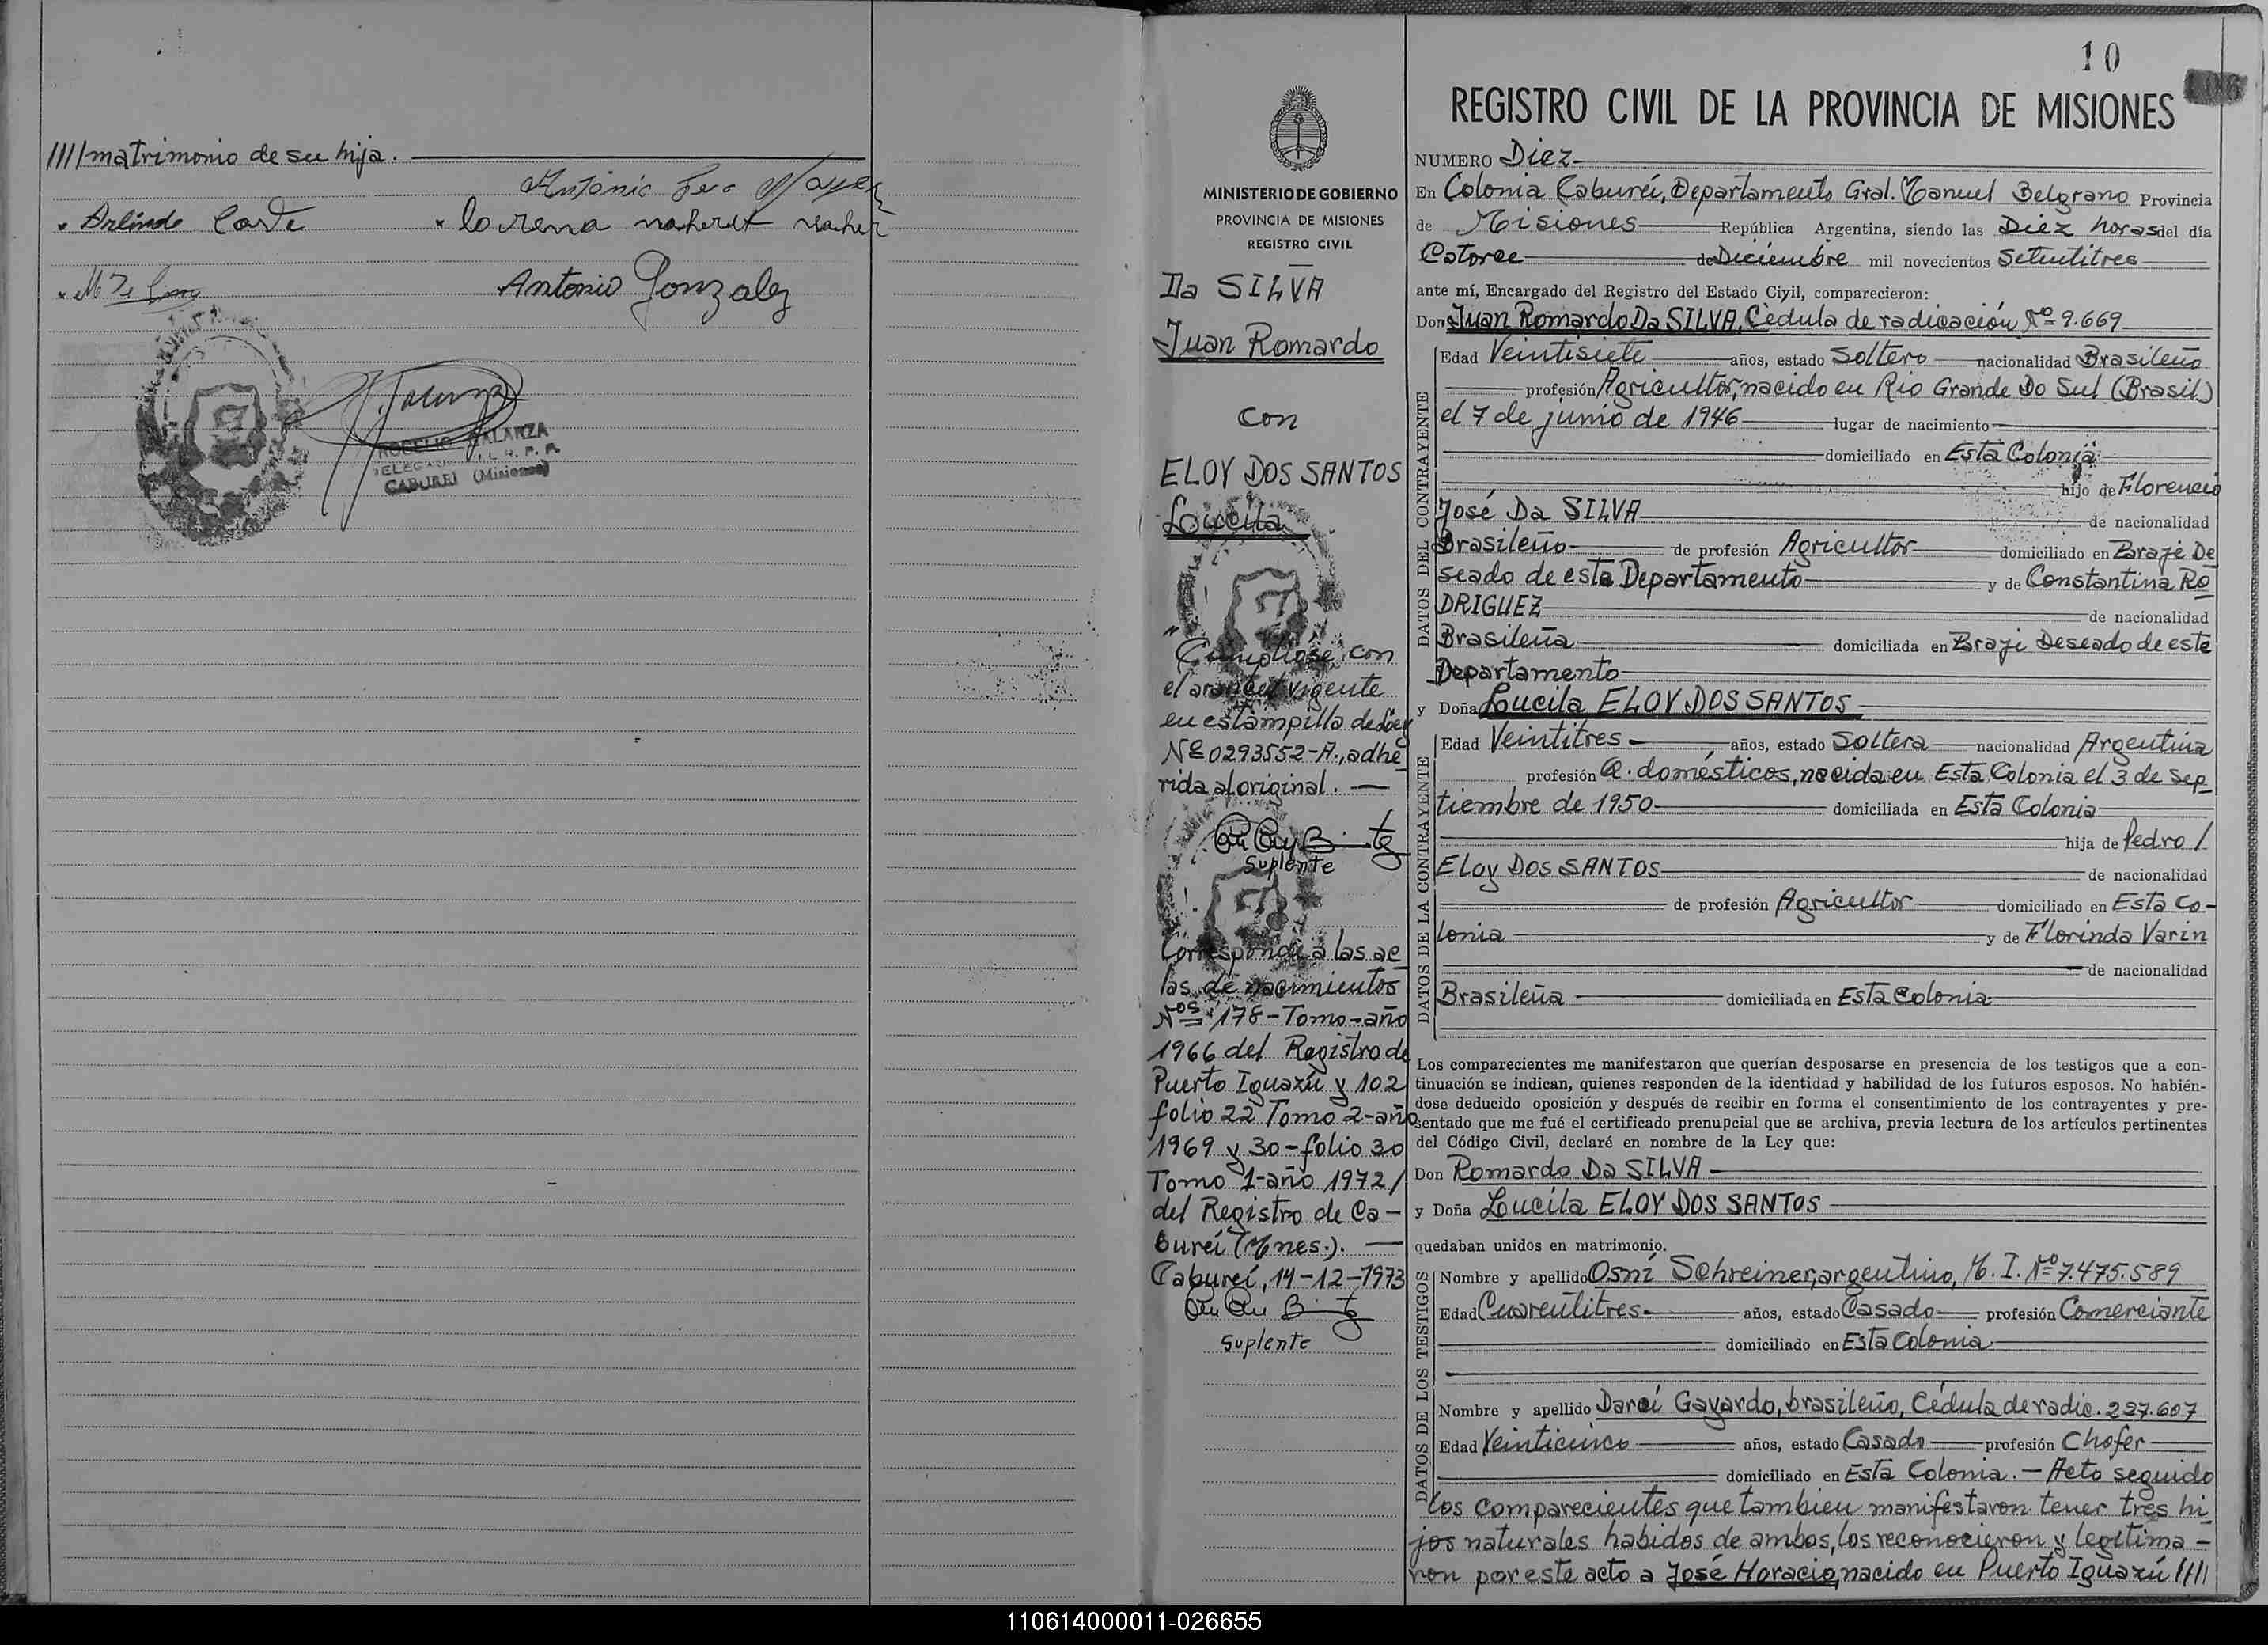 ////matrimonio de su hija.
Antonio
Arlindo
lorena
Antonio Gonzalez
ROGELIO GALARZA
CABUREI (Misiones)
10
MINISTERIO DE GOBIERNO
PROVINCIA DE MISIONES
REGISTRO CIVIL
Da SILVA
Juan Romardo
con
ELOY DOS SANTOS
Lucila
"Cumpliose con
el arancel vigente
en estampilla de Ley
Nº 0293552-A., adhe
rida al original. —
Suplente
Corresponde a las ac
tas de nacimientos
Nos 178-Tomo-año
1966 del Registro de
Puerto Iguazú y 102
folio 22 Tomo 2-año
1969 y 30-folio 30
Tomo 1-año 1972/
del Registro de Ca-
bureí (Mnes.). —
Cabureí, 14-12-1973
Suplente
REGISTRO CIVIL DE LA PROVINCIA DE MISIONES
NUMERO Diez
En Colonia Cabureí, Departamento Gral. Manuel Belgrano Provincia
de Misiones República Argentina, siendo las Diez horas del día
Catorce de Diciembre mil novecientos Setentitres
ante mí, Encargado del Registro del Estado Civil, comparecieron:
Don Juan Romardo Da SILVA, Cédula de radicación Nº 9.669
DATOS DEL CONTRAYENTE
Edad Veintisiete años, estado Soltero nacionalidad Brasileño
profesión Agricultor, nacido en Rio Grande Do Sul (Brasil)
el 7 de junio de 1946 lugar de nacimiento
domiciliado en Esta Colonia
hijo de Florencio
José Da SILVA de nacionalidad
Brasileño de profesión Agricultor domiciliado en Brazi De
seado de este Departamento y de Constantina RO
DRIGUEZ de nacionalidad
Brasileña domiciliada en Brazi Deseado de este
Departamento
y Doña Lucila ELOY DOS SANTOS
DATOS DE LA CONTRAYENTE
Edad Veintitres años, estado Soltera nacionalidad Argentina
profesión Q. domésticos, nacida en Esta Colonia el 3 de Sep
tiembre de 1950 domiciliada en Esta Colonia
hija de Pedro /
ELOY DOS SANTOS de nacionalidad
de profesión Agricultor domiciliado en Esta Co-
lonia y de Florinda Varin
de nacionalidad
Brasileña domiciliada en Esta Colonia
Los comparecientes me manifestaron que querían desposarse en presencia de los testigos que a con-
tinuación se indican, quienes responden de la identidad y habilidad de los futuros esposos. No habién-
dose deducido oposición y después de recibir en forma el consentimiento de los contrayentes y pre-
sentado que me fué el certificado prenupcial que se archiva, previa lectura de los artículos pertinentes
del Código Civil, declaré en nombre de la Ley que:
Don Romardo Da SILVA
y Doña Lucila ELOY DOS SANTOS
quedaban unidos en matrimonio.
DATOS DE LOS TESTIGOS
Nombre y apellido Osni Schreiner, argentino, M. I. Nº 7.475.589
Edad Cuarentitres años, estado Casado profesión Comerciante
domiciliado en Esta Colonia
Nombre y apellido Darci Gayardo, brasileño, Cédula de radic. 227.607
Edad Veinticinco años, estado Casado profesión Chofer
domiciliado en Esta Colonia. — Acto seguido
los comparecientes que tambien manifestaron tener tres hi
jos naturales habidos de ambos, los reconocieron y legitima-
ron por este acto a José Horacio, nacido en Puerto Iguazú ////
110614000011-026655